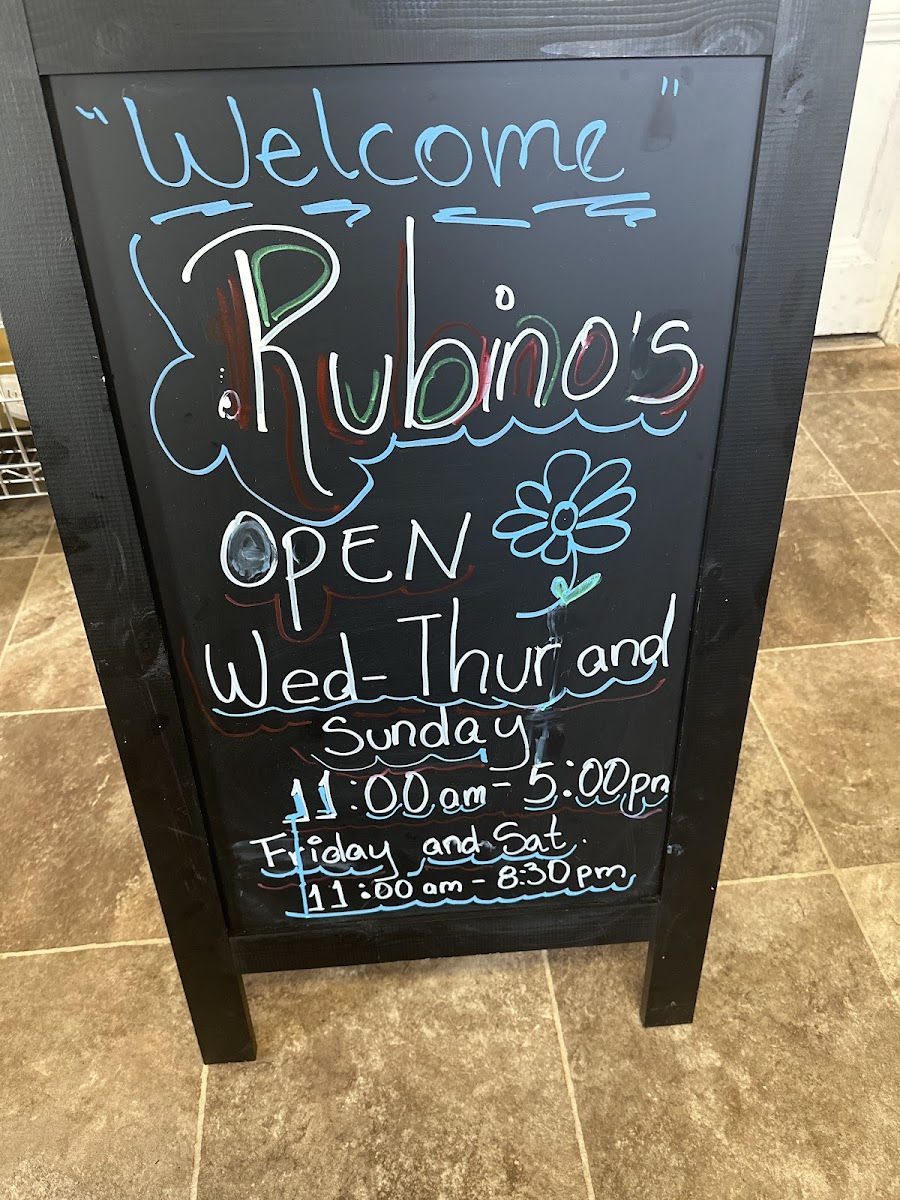 "Welcome"
Rubino's
OPEN
Wed-Thur and
Sunday
11:00 am - 5:00 pm
Friday and Sat.
11:00 am - 8:30 pm